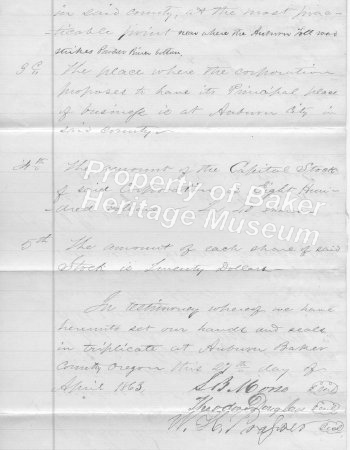 in said county, at the most prac-
ticable point near where the Auburn Toll road
strikes Powder River bottom
3rd The place where the corporation
proposes to have its Principal place
of business is at Auburn City in
said County
4th The amount of the Capital Stock
of said is Eight Hun-
dred
5th The amount of each share of said
Stock is Twenty Dollars
In testimony whereof we have
hereunto set our hands and seals
in triplicate at Auburn Baker
County Oregon this day of
April 1863
S.B. Seal
Theodore Douglas Seal
W. H. Seal
Property of Baker
Heritage Museum